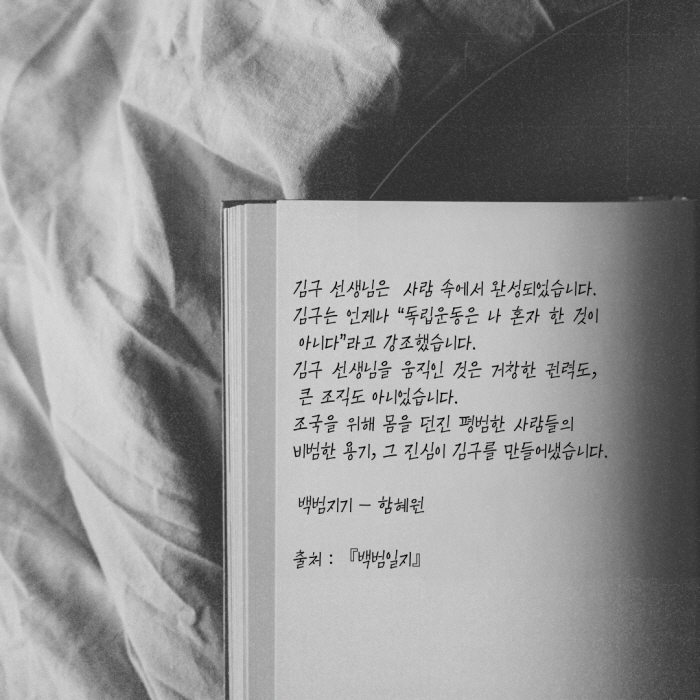 김구 선생님은 사람 속에서 완성되었습니다.
김구는 언제나 “독립운동은 나 혼자 한 것이
아니다”라고 강조했습니다.
김구 선생님을 움직인 것은 거창한 권력도,
큰 조직도 아니었습니다.
조국을 위해 몸을 던진 평범한 사람들의
비범한 용기, 그 진심이 김구를 만들어냈습니다.
백범지기 – 함혜원
출처 : 『백범일지』